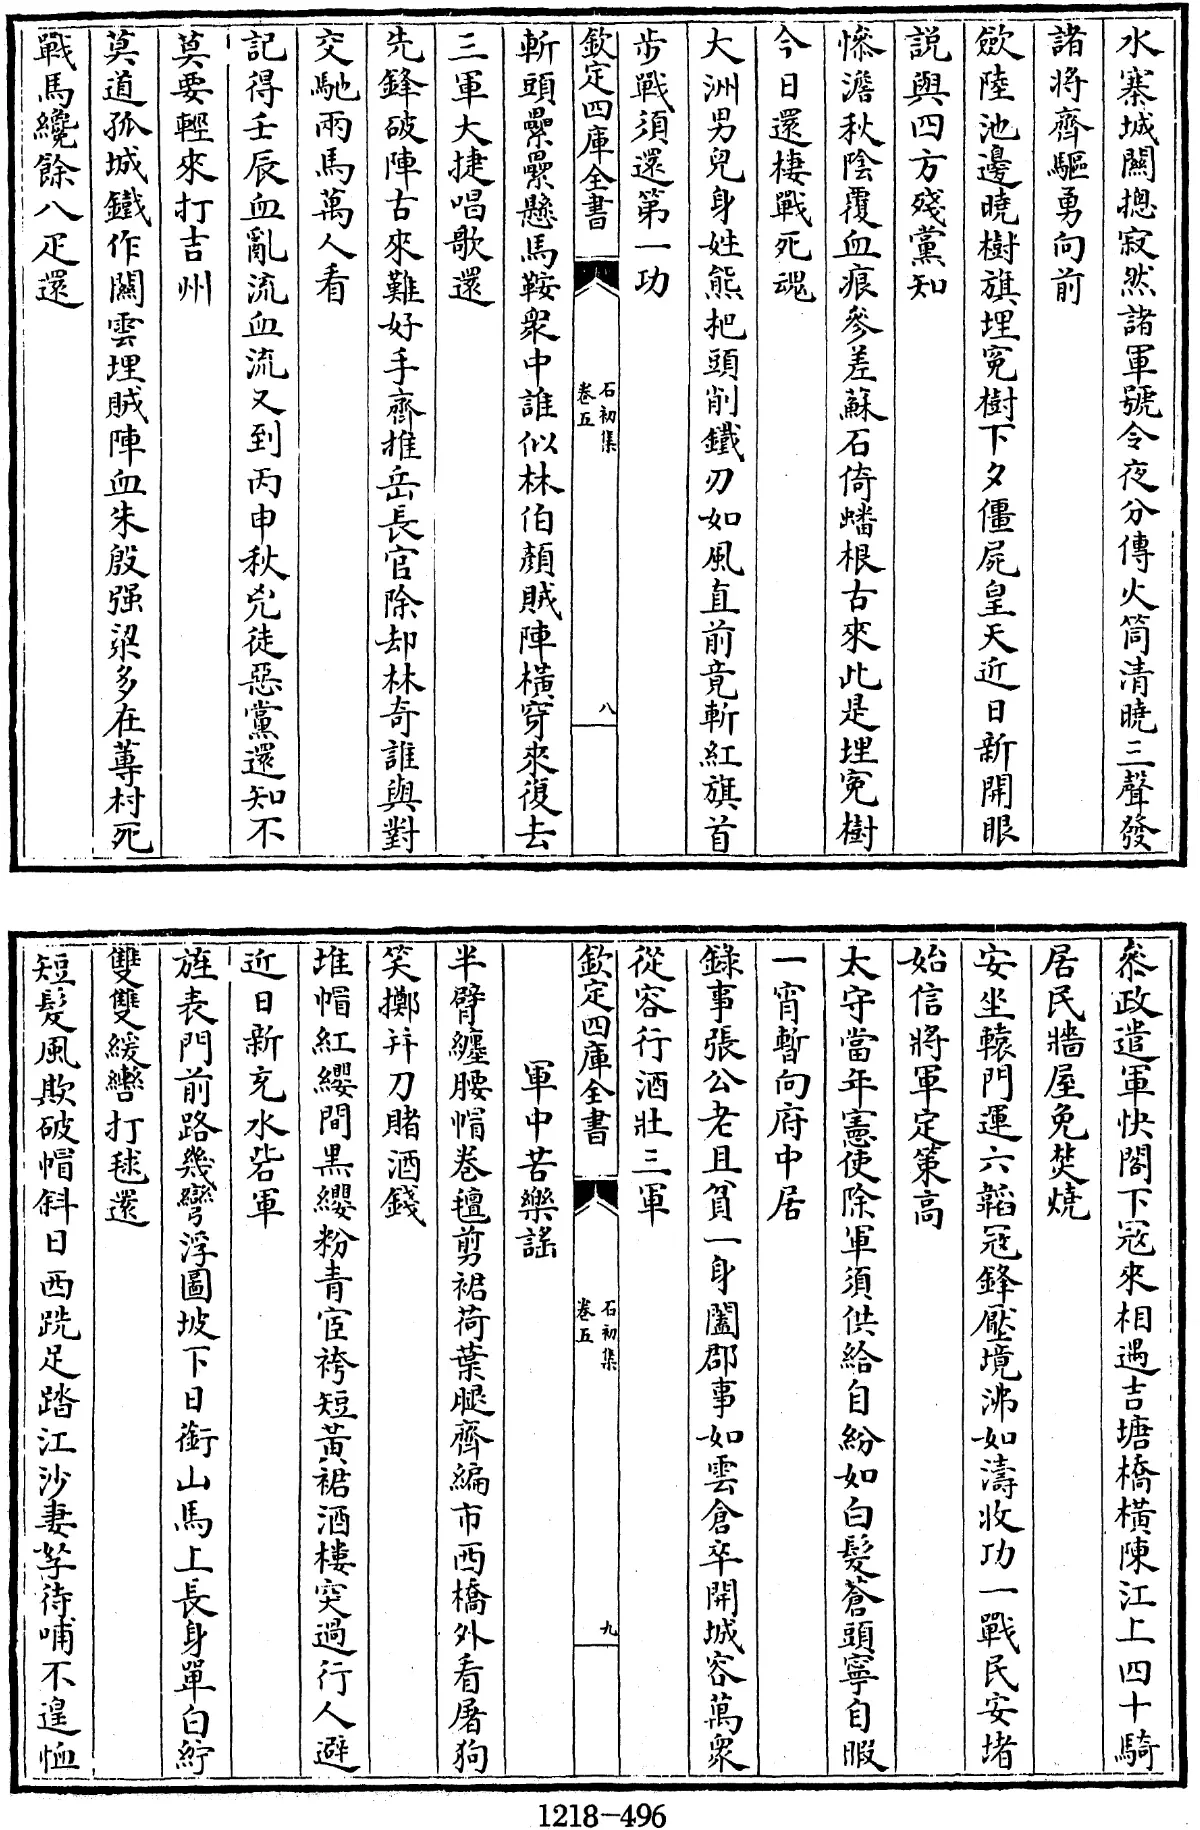 水寨城闗摠寂然諸軍號令夜分傳火筒清曉三聲發
諸將齊驅勇向前
斂陸池邊曉樹旗埋寃樹下夕僵屍皇天近日新開眼
説與四方殘黨知
慘澹秋陰覆血痕參差蘇石倚蟠根古來此是埋寃樹
今日還棲戰死魂
大洲男兒身姓熊把頭削鐵刃如風直前竟斬紅旗首
步戰須還第一功
欽定四庫全書
石初集
卷五
八
斬頭纍纍懸馬鞍衆中誰似林伯顔賊陣橫穿來復去
三軍大捷唱歌還
先鋒破陣古來難好手齊推岳長官除却林奇誰與對
交馳兩馬萬人看
記得壬辰血亂流血流又到丙申秋兇徒惡黨還知不
莫要輕來打吉州
莫道孤城鐵作闗雲埋賊陣血朱殷强梁多在蓴村死
戰馬纔餘八疋還
叅政遣軍快閣下冦來相遇吉塘橋橫陳江上四十騎
居民牆屋免焚燒
安坐轅門運六韜冦鋒壓境沸如濤收功一戰民安堵
始信將軍定策高
太守當年憲使除軍須供給自紛如白髮蒼頭寧自暇
一宵暫向府中居
錄事張公老且貧一身闔郡事如雲倉卒開城容萬衆
從容行酒壯三軍
欽定四庫全書
石初集
卷五
九
軍中苦樂謡
半臂纏腰帽卷氊剪裾荷葉腿齊編市西橋外看屠狗
笑擲弁刀賭酒錢
堆帽紅纓間黒纓粉青宦袴短黃裙酒樓突過行人避
近日新充水砦軍
旌表門前路幾彎浮圖坡下日銜山馬上長身單白紵
雙雙緩轡打毬還
短髮風欺破帽斜日西跣足踏江沙妻孥待哺不遑恤
1218-496